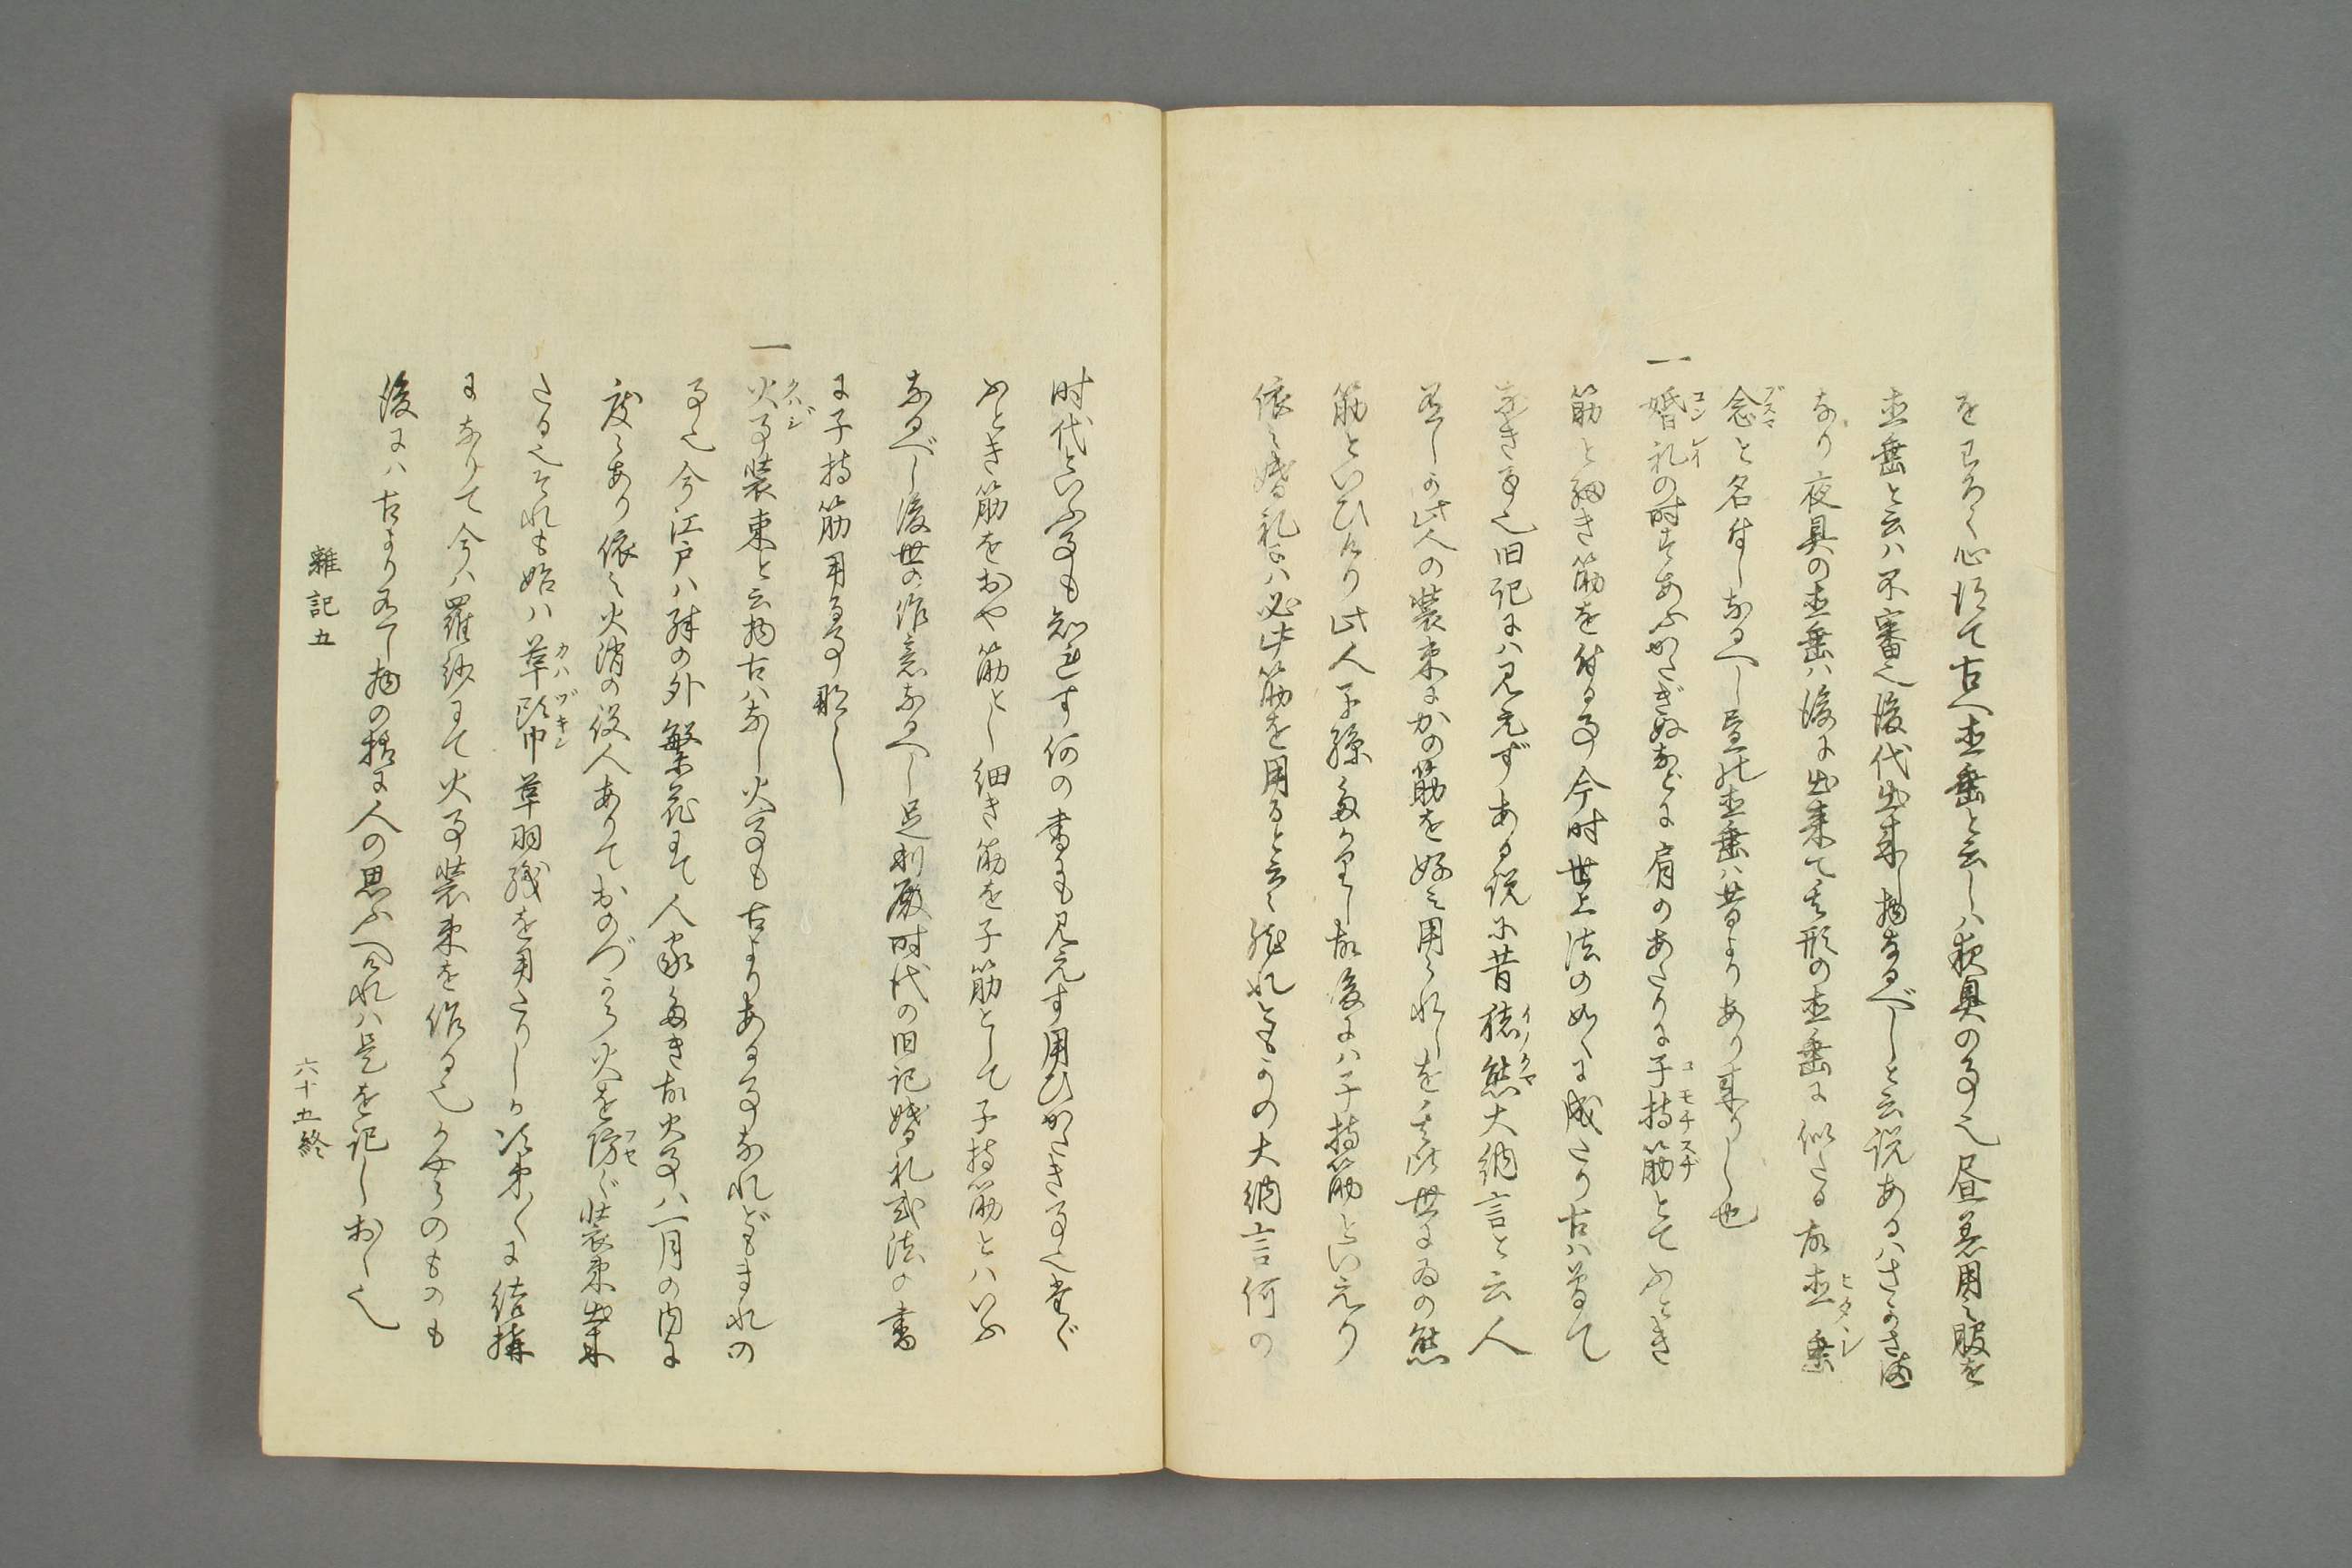 をわろく心得て古へ直垂と云しハ夜具の事也昼着用之服を
直垂と云ハ不審也後代出来し物なるべしと云説あるハさかさま
なり夜具の直垂ハ後に出来て其形の直垂に似たる故直垂
念と名付しなるへし昼の直垂ハ昔よりあり来りし也
一 婚礼の時きあふかたぎぬなどに肩のあたりに子持筋とてふとき
筋と細き筋を付る事今時世上法の如くに成たり古ハ曽て
なき事也旧記にハ見えずある説に昔猪熊大納言と云人
若しか此人の装束にかの筋を好ミ用られしを其比世にゐの熊
筋といひけり此人子孫多かりし故後にハ子持筋といえり
依之婚礼にハ必此筋を用ると云々然れともかの大納言何の
時代といふ事も知れす何の書にも見えす用ひかたき事也当ぐ
ふとき筋をおや筋とし細き筋を子筋として子持筋とハいふ
なるべし後世の作意なるへし足利殿時代の旧記婚礼式法の書
に子持筋用る事那し
一 火事装束と云物古ハなし火事も古よりある事なれどもまれの
事也今江戸ハ殊の外繁花にて人家多き故火事ハ一月の内に
度々あり依之火消の役人ありておのづから火を防ぐ装束出来
たる也それも始ハ革頭巾革羽織を用たりしか次第〱に結構
になりて今ハ羅紗にて火事装束を作る也かやうのものも
後にハ古より有し物の様に人の思ふへけれハ是を記しおく也
雑記五
六十五終